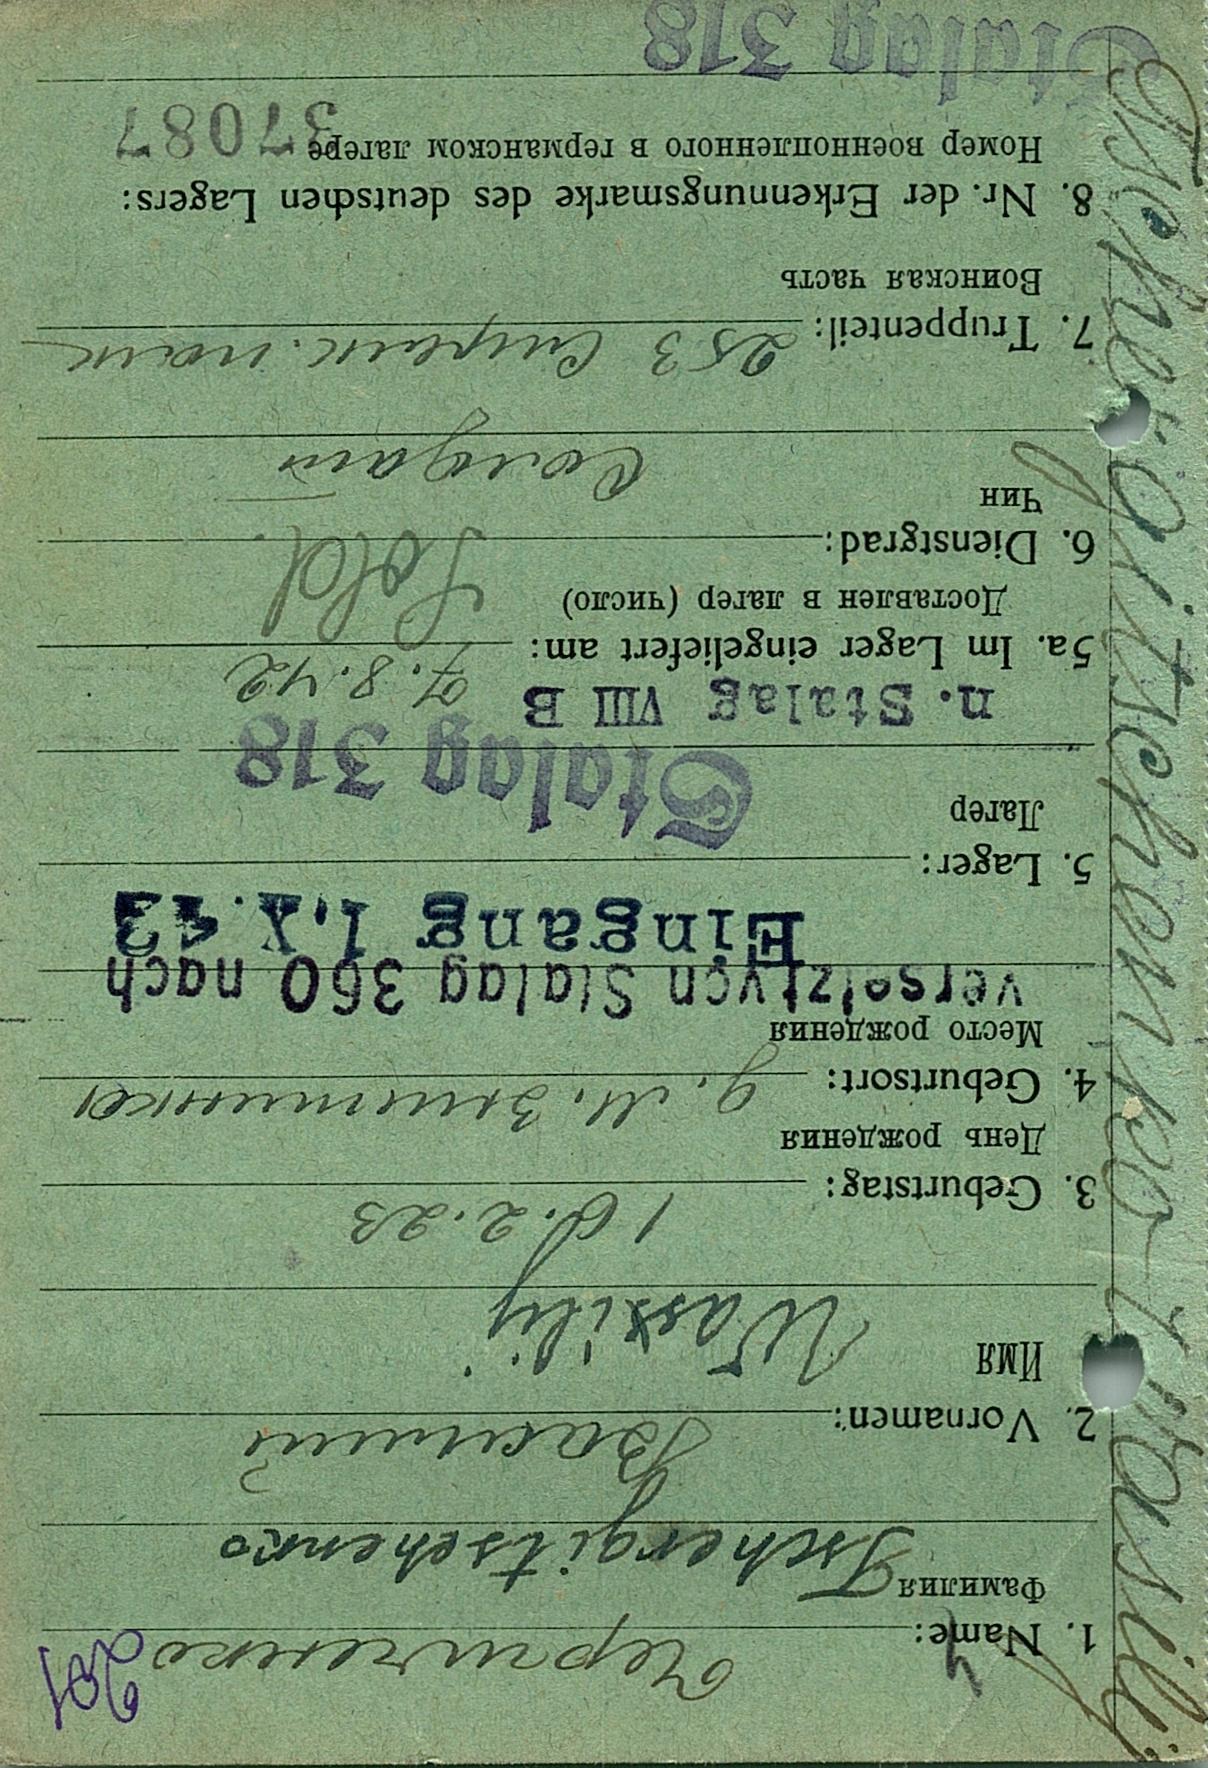 201
Черниченко
1. Name:
Фамилия
Tschergitschenko
Василий
2. Vornamen:
Имя
Wassilij
16.2.23
3. Geburtstag:
День рождения
4. Geburtsort: д. М.
Место рождения
versetzt von Stalag 360 nach
Eingang 1.X.43
5. Lager:
Лагер
Stalag 318
n. Stalag VIII B
7.8.42
5a. Im Lager eingeliefert am:
Доставлен в лагер (число)
Sold.
6. Dienstgrad:
Чин
Солдат
7. Truppenteil: 253
Воинская часть
8. Nr. der Erkennungsmarke des deutschen Lagers:
Номер военнопленного в германском лагере 37087
Stalag 318
Tschergitschenko Wasilij